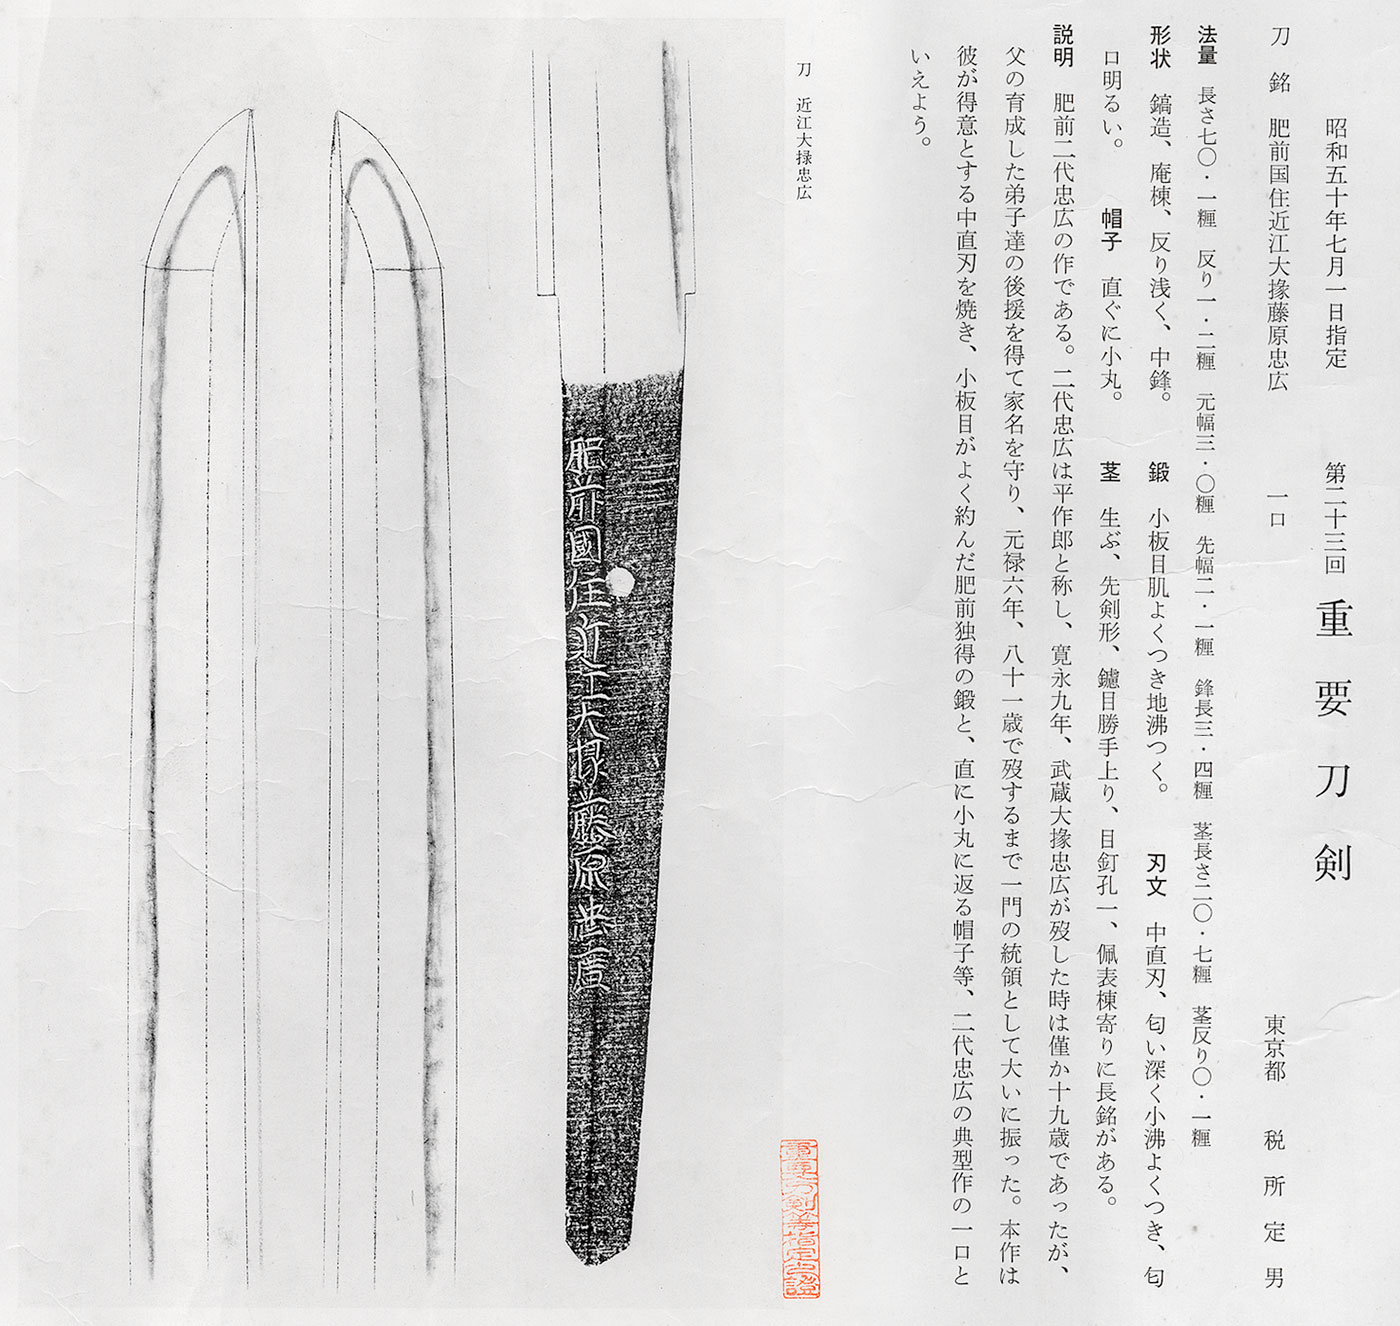 昭和五十年七月一日指定　第二十三回　重要刀剣
刀　銘　肥前国住近江大掾藤原忠広　一口　東京都　税所定男
法量　長さ七〇・一糎　反り一・二糎　元幅三・〇糎　先幅二・一糎　鋒長三・四糎　茎長さ二〇・七糎　茎反り〇・一糎
形状　鎬造、庵棟、反り浅く、中鋒。　鍛　小板目肌よくつき地沸つく。　刃文　中直刃、匂い深く小沸よくつき、匂
口明るい。　帽子　直ぐに小丸。　茎　生ぶ、先剣形、鑢目勝手上り、目釘孔一、佩表棟寄りに長銘がある。
説明　肥前二代忠広の作である。二代忠広は平作郎と称し、寛永九年、武蔵大掾忠広が歿した時は僅か十九歳であったが、
父の育成した弟子達の後援を得て家名を守り、元禄六年、八十一歳で歿するまで一門の統領として大いに振った。本作は
彼が得意とする中直刃を焼き、小板目がよく約んだ肥前独得の鍛と、直に小丸に返る帽子等、二代忠広の典型作の一口と
いえよう。
刀　近江大掾忠広
肥前國住近江大掾藤原忠廣
重要刀剣等指定之證